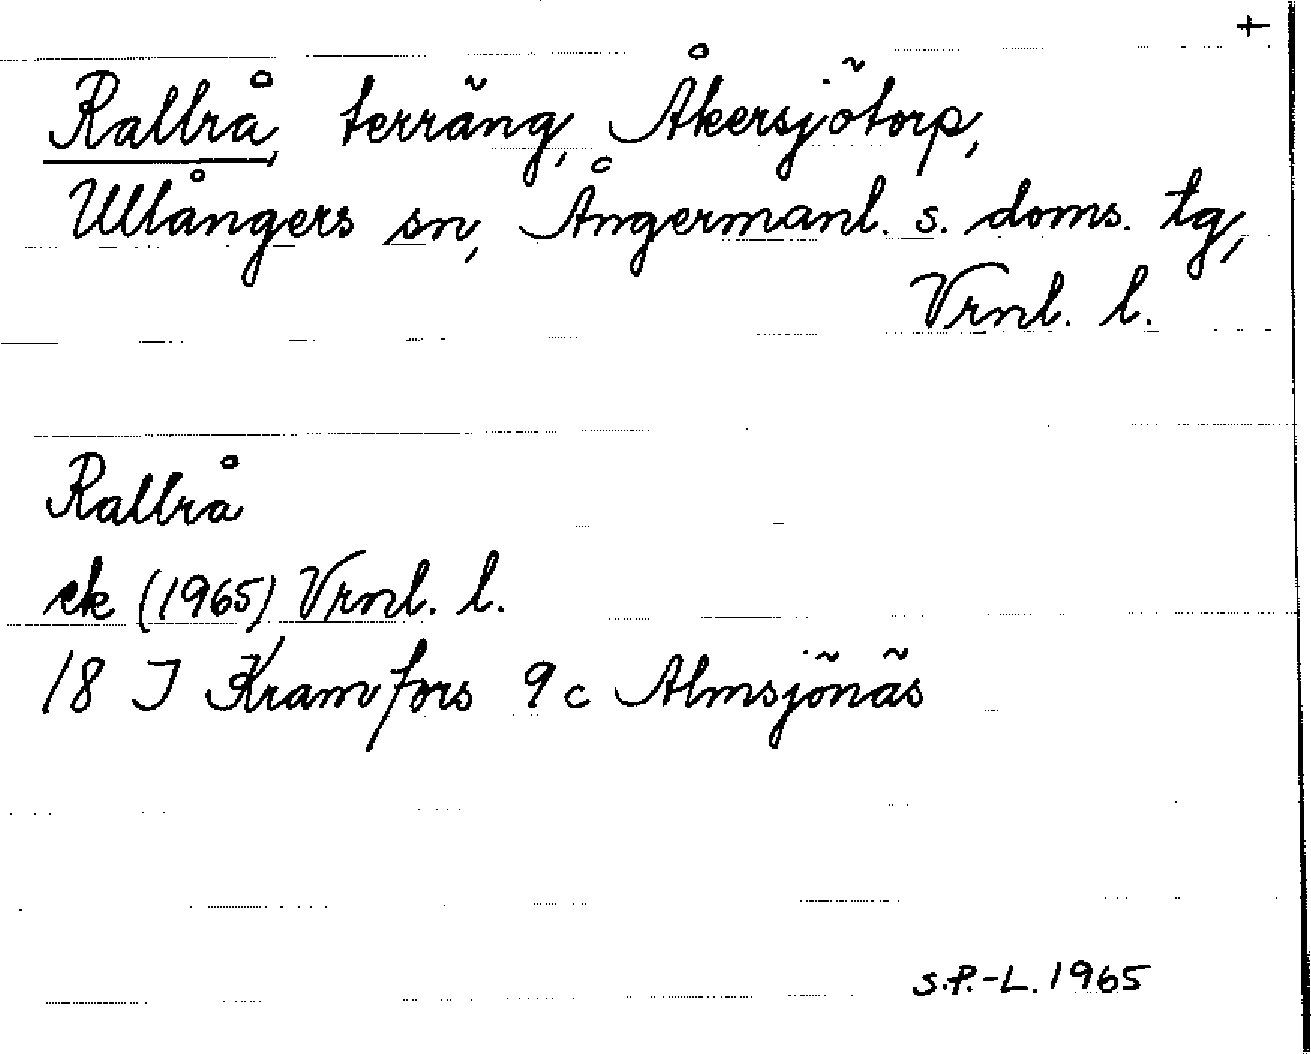 +
Rallrå, terräng, Åkersjötorp,
Ullångers sn, Ångermanl. s. doms. tg,
Vrnl. l.
Rallrå
ek (1965) Vrnl. l.
18 I Kramfors 9 c Almsjönäs
S.P.-L. 1965